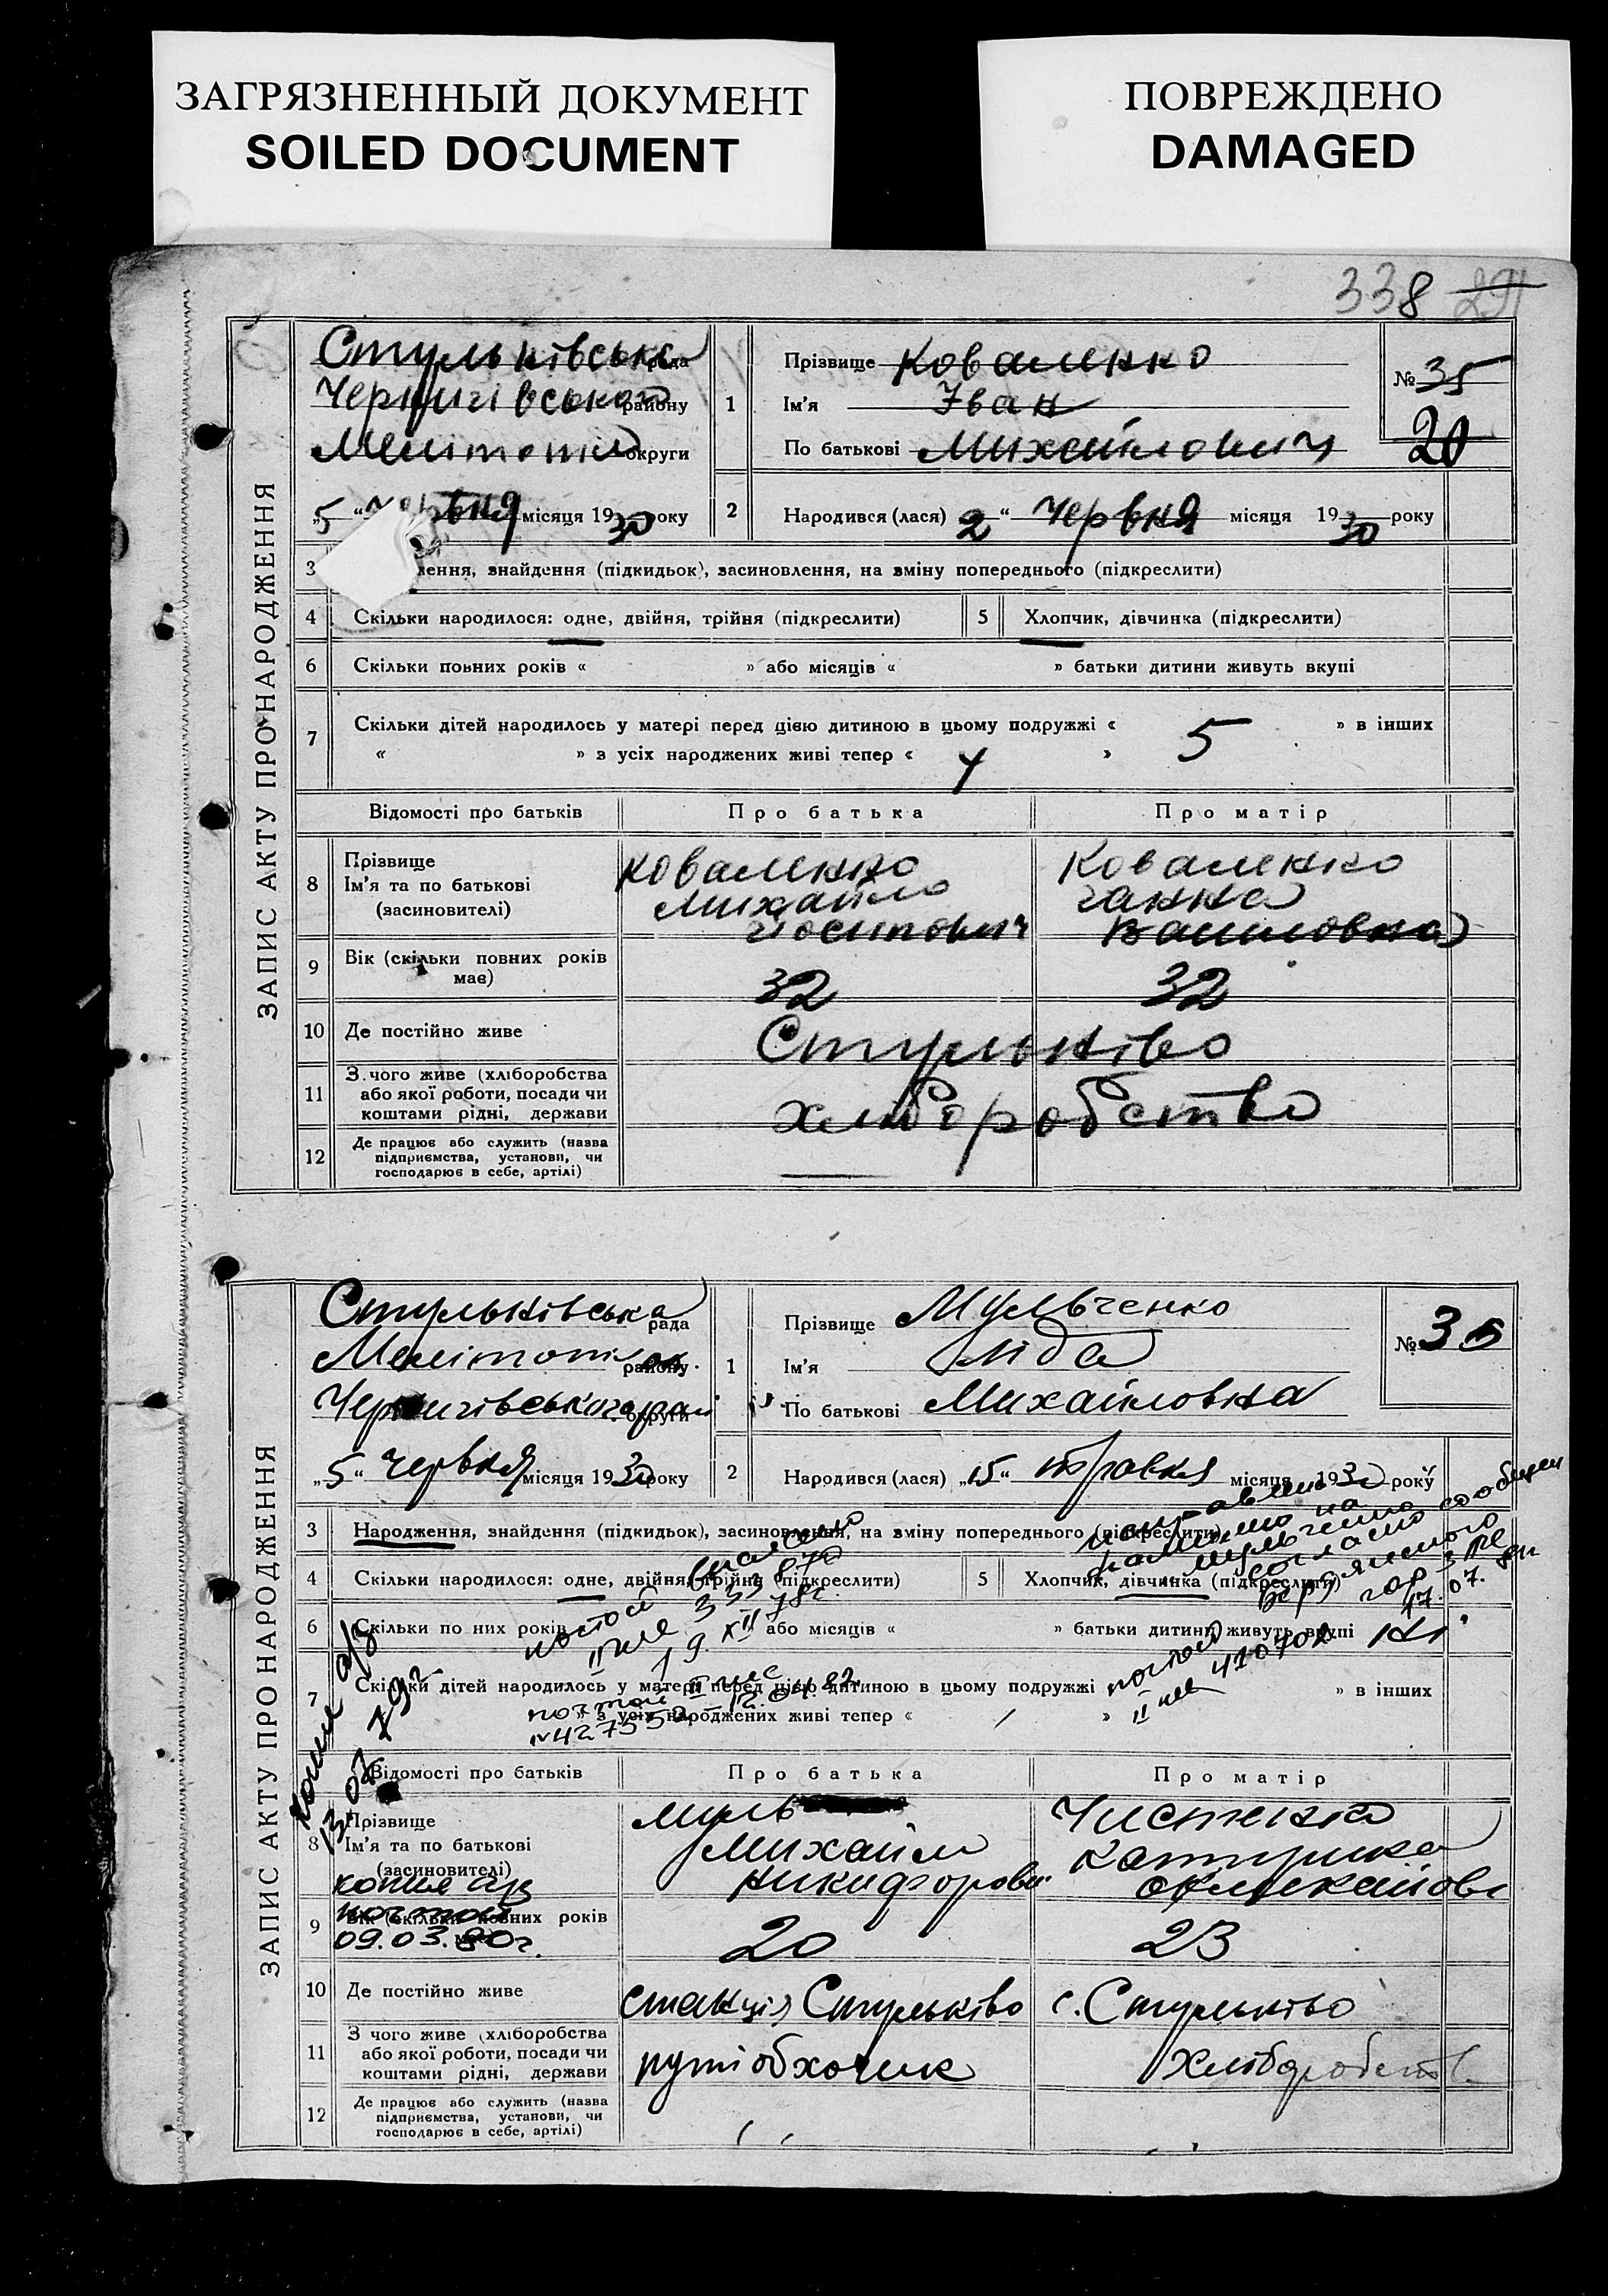 ЗАГРЯЗНЕННЫЙ ДОКУМЕНТ
SOILED DOCUMENT
ПОВРЕЖДЕНО
DAMAGED
338 291
ЗАПИС АКТУ ПРО НАРОДЖЕННЯ
Стульнівська рада
Чернигівського району
Мелітопіл округи
„5“ червня місяця 1930 року
1 Прізвище Коваленко
Ім'я Іван
По батькові Михайлович
№ 35
20
2 Народився (лася) 2 “ червня місяця 1930 року
3 ення, знайдення (підкидьок), засиновлення, на зміну попереднього (підкреслити)
4 Скільки народилося: одне, двійня, трійня (підкреслити) 5 Хлопчик, дівчинка (підкреслити)
6 Скільки повних років « » або місяців « » батьки дитини живуть вкупі
7 Скільки дітей народилось у матері перед цією дитиною в цьому подружжі « 5 » в інших
« » з усіх народжених живі тепер « 4 »
Відомості про батьків Про батька Про матір
8 Прізвище Коваленко Коваленко
Ім'я та по батькові Михайло Ганна
(засиновителі) Йосипович
9 Вік (скільки повних років має) 32 32
10 Де постійно живе Стульніво
11 З чого живе (хліборобства
або якої роботи, посади чи
коштами рідні, держави хліборобство
12 Де працює або служить (назва
підприємства, установи, чи
господарює в себе, артілі)
ЗАПИС АКТУ ПРО НАРОДЖЕННЯ
Стульнівська рада
Мелітопіл району
Чернигівського рай округи
„5“ червня місяця 1930 року
1 Прізвище Мульченко
Ім'я Ліда
По батькові Михайловна
№ 36
2 Народився (лася) „15“ травня місяця 1930 року
3 Народження, знайдення (підкидьок), засиновлення, на зміну попереднього (підкреслити)
4 Скільки народилося: одне, двійня, трійня (підкреслити) 5 Хлопчик, дівчинка (підкреслити)
6 Скільки повних років або місяців « » батьки дитини живуть вкупі
7 Скільки дітей народилось у матері перед цією дитиною в цьому подружжі » в інших
» з усіх народжених живі тепер « »
исправлено
фамилию на
Мульченко
согласно сообщен
Бердянского
17.07.
19.XII 78г.
почтой
№427550
12.04.82
почтой
II 410702
копия а/з
13.03 79г.
Відомості про батьків Про батька Про матір
8 Прізвище Муль Чистенка
Ім'я та по батькові Михайло Катирина
(засиновителі) Никифорови
копия а/з
почтой
09.03.80г.
9 Вік (скільки повних років має) 20 23
10 Де постійно живе станція Стульніво с. Стульніво
11 З чого живе (хліборобства
або якої роботи, посади чи
коштами рідні, держави путіобхочик хліборобств.
12 Де працює або служить (назва
підприємства, установи, чи
господарює в себе, артілі)